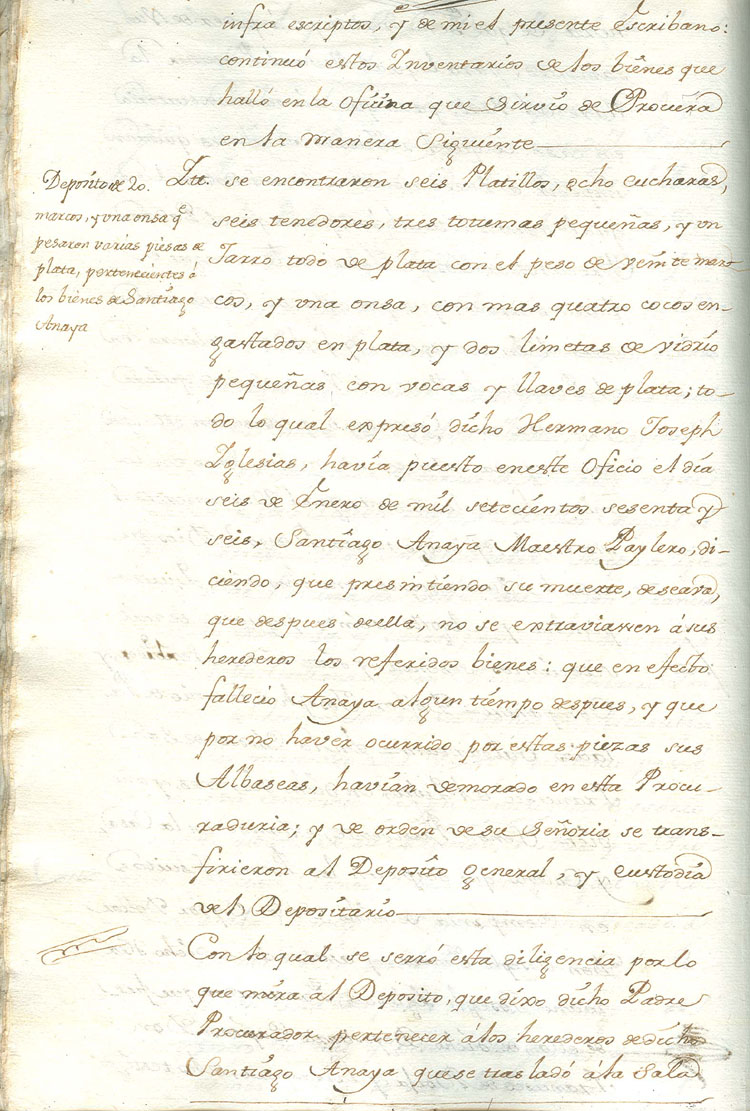 infra escriptos, y de mi el presente Escribano:
continuó estos Inventarios de los biénes que
halló en la Oficina que Sirvió de Procura
en la manera Siguiente
Deposito de 20.
marcos, y una onsa qe
pesaron varias piesas de
plata, pertenecientes á
los biénes de Santiago
Anaya
Itt. se encontraron seis Platillos, ocho cucharas,
seis tenedores, tres totumas pequeñas, y un
Jarro todo de plata con el peso de veinte mar-
cos, y una onsa, con mas quatro cocos en-
gastados en plata, y dos limetas de vidrio
pequeñas con vocas y llaves de plata; to-
do lo qual expresó dicho Hermano Joseph
Iglesias, havía puesto en este Oficio el día
seis de Enero de mil setecientos sesenta y
seis, Santiago Anaya Maestro Paylero, di-
ciendo, que presintiendo su muerte, deseava,
que despues de ella, no se extraviassen á sus
herederos los referidos bienes: que en efecto
fallecio Anaya algun tiempo despues, y que
por no haver ocurrido por estas piezas sus
Albaseas, havían demorado en esta Procu-
raduria; y de orden de su Señoria se trans-
firieron al Deposito general, y custodia
del Depositario
Con lo qual se serró esta diligencia por lo
que mira al Deposito, que dixo dicho Padre
Procurador pertenecer á los herederos de dicho
Santiago Anaya que se trasladó á la Sala